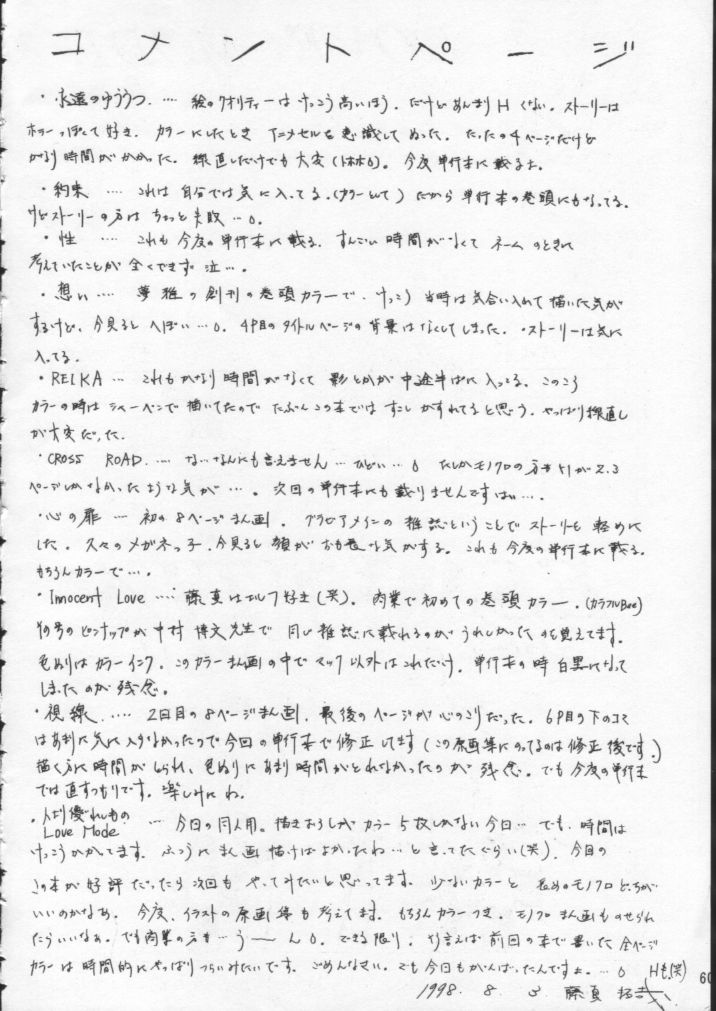 コメントページ
・永遠のゆううつ.‥‥ 絵のクオリティーはけっこう高いほう. だけどあんまりHくない. ストーリーは
ホラーっぽくて好き. カラーにしたとき アニメセルを意識してぬった. たったの4ページだけど
かなり時間がかかった. 線直しだけでも大変(トホホ). 今度単行本に載るよ.
・約束 ‥‥ これは自分では気に入ってる.(カラーとして) だから単行本の巻頭にもなってる.
けどストーリーの方はちょっと失敗…。
・性 ‥‥ これも今度の単行本に載る. すんごい時間がなくて ネームのときに
考えていたことが全くできず 泣….
・想い ‥‥ 夢雅の創刊の巻頭カラーで. けっこう当時は気合い入れて描いた気が
するけど. 今見ると へぼい…。4P目のタイトルページの背景はなくしてしまった. ・ストーリーは気に
入ってる.
・REIKA … これもかなり時間がなくて 影とかが中途半ぱに入ってる. このころ
カラーの時はシャーペンで描いてたので たぶんこの本ではすこしかすれてると思う. やっぱり線直し
が大変だった.
・CROSS ROAD.‥‥ な…なんにも言えません…ひどい…。たしかモノクロの方も〆切が2.3
ページしかなかったような気が…. 次回の単行本にも載りませんですはい….
・心の扉 … 初の8ページまん画. グラビアメインの雑誌ということでストーリーを軽めに
した. 久々のメガネっ子. 今見ると顔がおも長な気がする. これも今度の単行本に載る.
もちろんカラーで….
・Innocent Love ‥‥ 藤真はエルフ好き(笑). 商業で初めての巻頭カラー.(カラフルBee)
その号のピンナップが中村博文先生で 同じ雑誌に載れるのがうれしかったのを覚えてます.
色ぬりはカラーインク. このカラーまん画の中でマック以外はこれだけ. 単行本の時白黒になって
しまったのが残念.
・視線.‥‥ 2回目の8ページまん画. 最後のページが心のこりだった. 6P目の下のコマ
はあまり気に入らなかったので今回の単行本で修正してます(この原画集にのってるのは修正後です.)
描く方に時間がとられ、色ぬりにあまり時間がとれなかったのが残念. でも今度の単行本
では直すつもりです. 楽しみにね.
・人より優れしもの
Love Mode … 今日の同人用. 描きおろしがカラー5枚しかない今日… でも. 時間は
けっこうかかってます. ふつうにまん画描けばよかったね…と言ってたぐらい(笑). 今日の
この本が好評だったら次回もやってみたいと思ってます. 少ないカラーと長めのモノクロどっちが
いいのかなぁ. 今度、イラストの原画集も考えてます. もちろんカラーつき. モノクロまん画ものせられ
たらいいなぁ. でも商業の方も…う――ん。できる限り. そう言えば前回の本で書いた全ページ
カラーは時間的にやっぱりつらいみたいです. ごめんなさい. でも今日もがんばったんですよ.…。Hも(笑)
1998. 8. 3. 藤真 拓哉
60